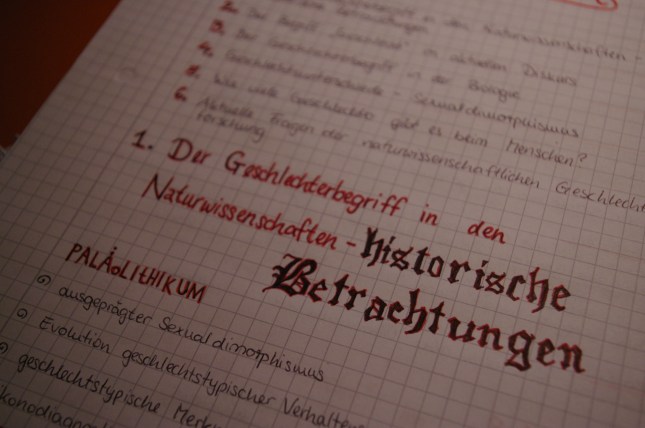 2.
3. Der Begriff im aktuellen Diskurs
4. Der Geschlechterbegriff in der Biologie
5. Geschlechtsunterschiede - Sexualdimorphismus
6. Wie viele Geschlechter gibt es beim Menschen?
Aktuelle Fragen der naturwissenschaftlichen Geschlecht
forschung
1. Der Geschlechterbegriff in den
Naturwissenschaften - historische
Betrachtungen
PALÄOLITHIKUM
ausgeprägter Sexualdimorphismus
Evolution geschlechtstypischer Verhaltens
geschlechtstypische Merk
konodiagno